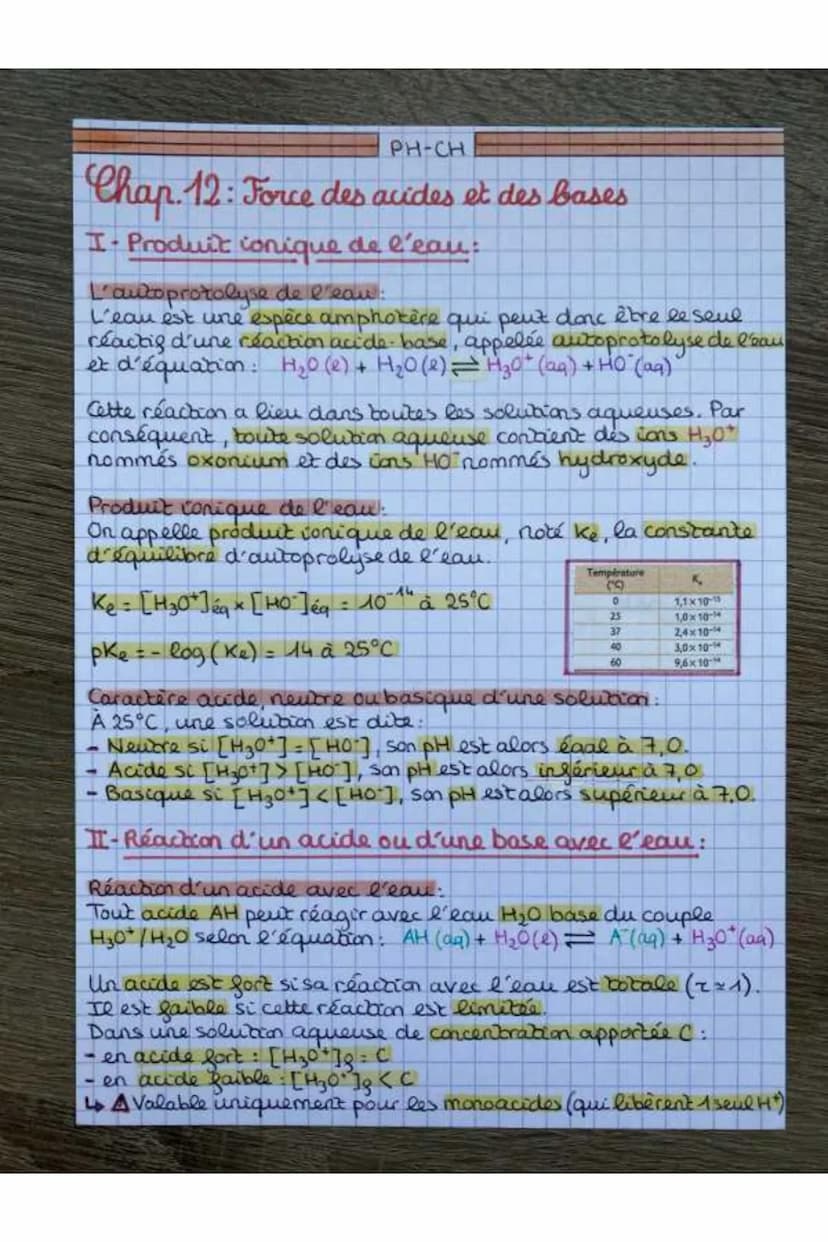 PH-CH
Chap.12: Force des acides et des bases
I- Produit ionique de l'eau:
L'autoprotolyse de l'eau:
L'eau est une espèce amphotère qui peut donc être le seul
réactif d'une réaction acido-base, appelée autoprotolyse de l'eau
et d'équation: H₂O(l) + H₂O(l) ⇌ H₃O⁺(aq) + HO⁻(aq)
Cette réaction a lieu dans toutes les solutions aqueuses. Par
conséquent, toute solution aqueuse contient des ions H₃O⁺
nommés oxonium et des ions HO⁻ nommés hydroxyde.
Produit ionique de l'eau:
On appelle produit ionique de l'eau, noté Ke, la constante
d'équilibre d'autoprolyse de l'eau.
Ke = [H₃O⁺]éq × [HO⁻]éq = 10⁻¹⁴ à 25°C
pKe = - log(Ke) = 14 à 25°C
Température (°C) Kₑ
0 1,1 × 10⁻¹⁵
25 1,0 × 10⁻¹⁴
37 2,4 × 10⁻¹⁴
40 3,0 × 10⁻¹⁴
60 9,6 × 10⁻¹⁴
Caractère acide, neutre ou basique d'une solution:
À 25°C, une solution est dite:
- Neutre si [H₃O⁺] = [HO⁻], son pH est alors égal à 7,0.
- Acide si [H₃O⁺] > [HO⁻], son pH est alors inférieur à 7,0
- Basique si [H₃O⁺] < [HO⁻], son pH est alors supérieur à 7.0.
II- Réaction d'un acide ou d'une base avec l'eau:
Réaction d'un acide avec l'eau:
Tout acide AH peut réagir avec l'eau H₂O base du couple
H₃O⁺/H₂O selon l'équation: AH(aq) + H₂O(l) ⇌ A⁻(aq) + H₃O⁺(aq)
Un acide est fort si sa réaction avec l'eau est totale (τ≈1).
Il est faible si cette réaction est limitée.
Dans une solution aqueuse de concentration apportée C:
- en acide fort: [H₃O⁺]f = C
- en acide faible: [H₃O⁺]f < C
↳ ⚠ Valable uniquement pour les monoacides (qui libèrent 1 seul H⁺)